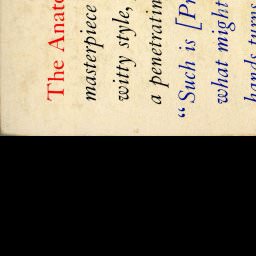 The Anato
masterpiece
witty style,
a penetratin
“Such is [Pr
what might
hands turns